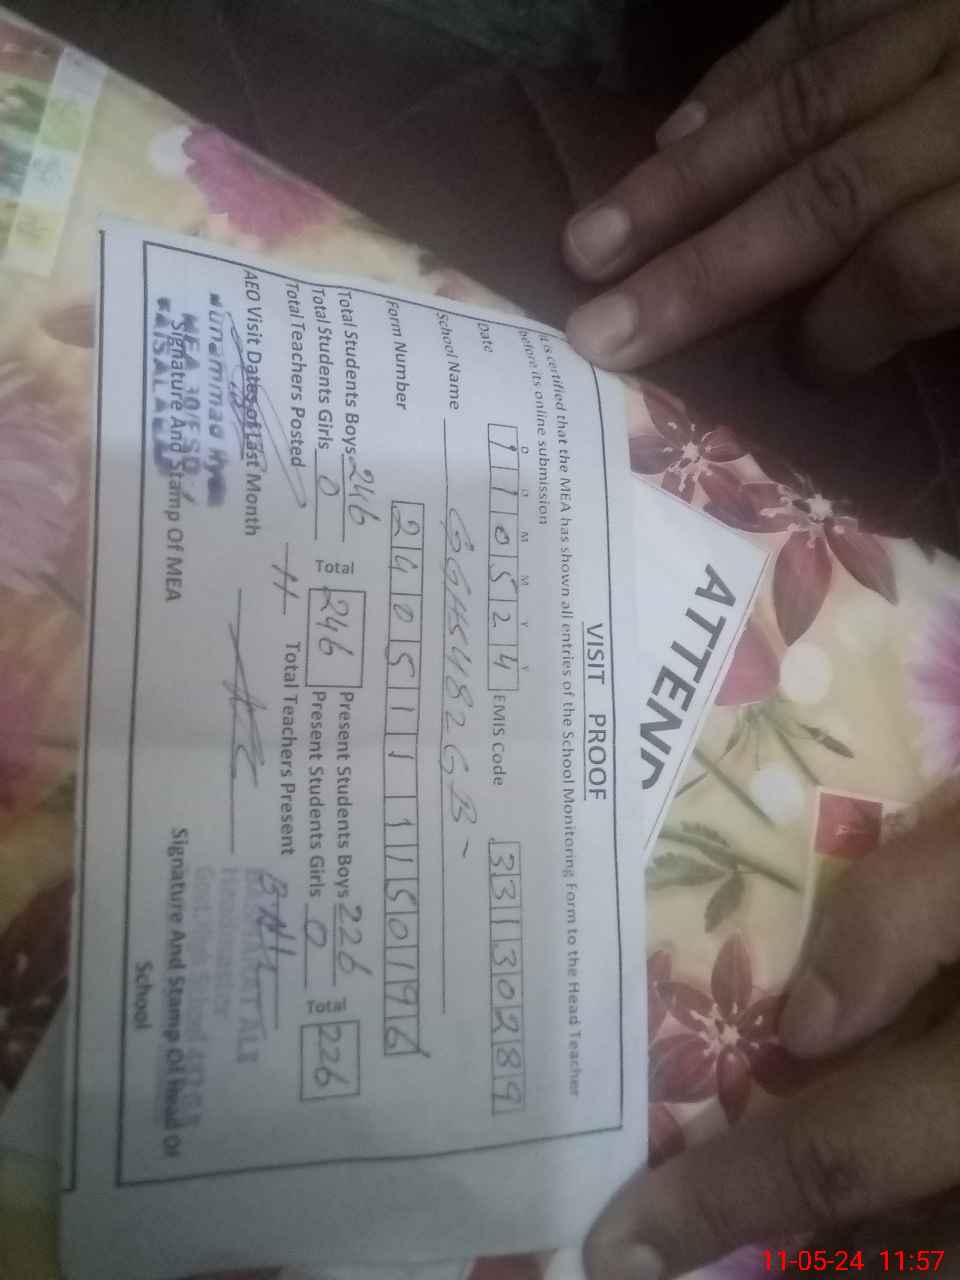 ATTEN
VISIT PROOF
It is certified that the MEA has shown all entries of the School Monitoring Form to the Head Teacher
before its online submission
D D M M Y Y
Date 110524 EMIS Code 33130289
School Name GGHS 482 GB
Form Number 2405111150196
Total Students Boys 246 Total 246 Present Students Boys 226 Total 226
Total Students Girls 0 Present Students Girls 0
Total Teachers Posted Total Teachers Present
AEO Visit Dates of Last Month
Signature And Stamp Of MEA
FAISALABAD
Signature And Stamp Of Head Of
School
11-05-24 11:57